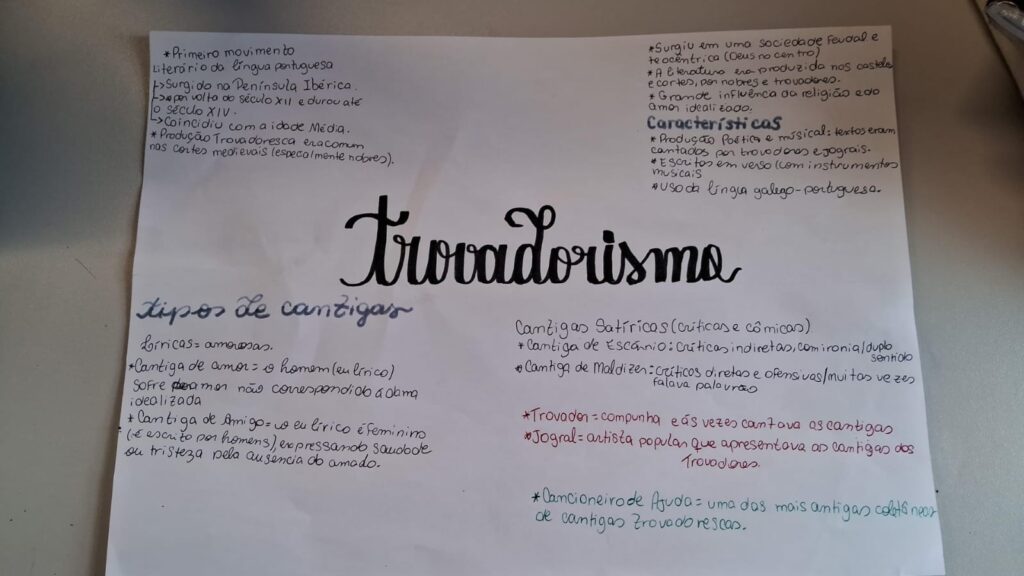 *Primeiro movimento
Literário da língua portuguesa
↳Surgido na Península Ibérica.
↳por volta do século XII e durou até
o século XIV.
↳Coincidiu com a idade Média.
*Produção Trovadoresca era comum
nas cortes medievais (especialmente nobres).
*Surgiu em uma sociedade Feudal e
teocêntrica (Deus no centro)
*A literatura era produzida nos castelos
e cortes, por nobres e trovadores.
*Grande influência da religião e do
amor idealizado.
Características
*Produção Poética e musical: textos eram
cantados por trovadores e jograis.
*Escritos em verso (com instrumentos
musicais
*Uso da língua galego-portuguesa.
Trovadorismo
tipos de cantigas
Líricas = amorosas.
*Cantiga de amor = o homem (eu lírico)
sofre amor não correspondido à dama
idealizada
*Cantiga de Amigo = o eu lírico é feminino
(é escrito por homens), expressando saudade
ou tristeza pela ausência do amado.
Cantigas Satíricas (críticas e cômicas)
*Cantiga de Escárnio: críticas indiretas, com ironia/duplo
sentido
*Cantiga de Maldizer: críticas diretas e ofensivas/muitas vezes
falava palavrão
*Trovador = compunha e ás vezes cantava as cantigas
*Jogral = artista popular que apresentava as cantigas dos
Trovadores.
*Cancioneiro de Ajuda = uma das mais antigas coletâneas
de cantigas trovadorescas.